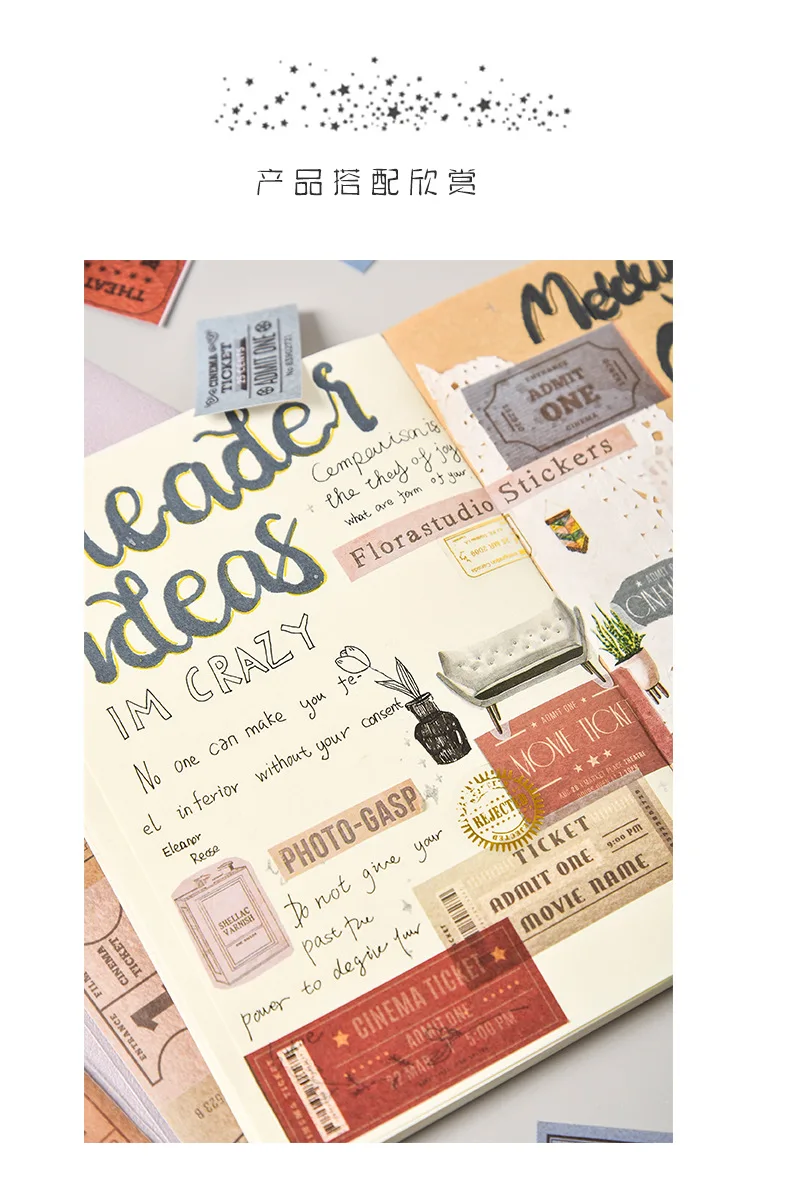 产品搭配欣赏
THEAT
CINEMA
TICKET
ADMIT ONE
No 83902731
Header
Ideas
Comparison is
the they of joy
what are form of your
Florastudio Stickers
ENTRANCE
ADMIT
ONE
CINEMA
ADMIT
IM CRAZY
No one can make you fe-
el inferior without your consent
Eleanor
Reose
ADMIT ONE
MOVIE TICKE
REJECTED
PHOTO-GASP
TICKET
ADMIT ONE
MOVIE NAME
9:00 PM
TICKET
SHELLAC
VARNISH
Do not give your
past the
power to degine your
CINEMA TICKET
ADMIT ONE
MAR
5:00 PM
CINEMA TICKET
FILM
CINEMA
TICKET
1
ENTRANCE
523 8